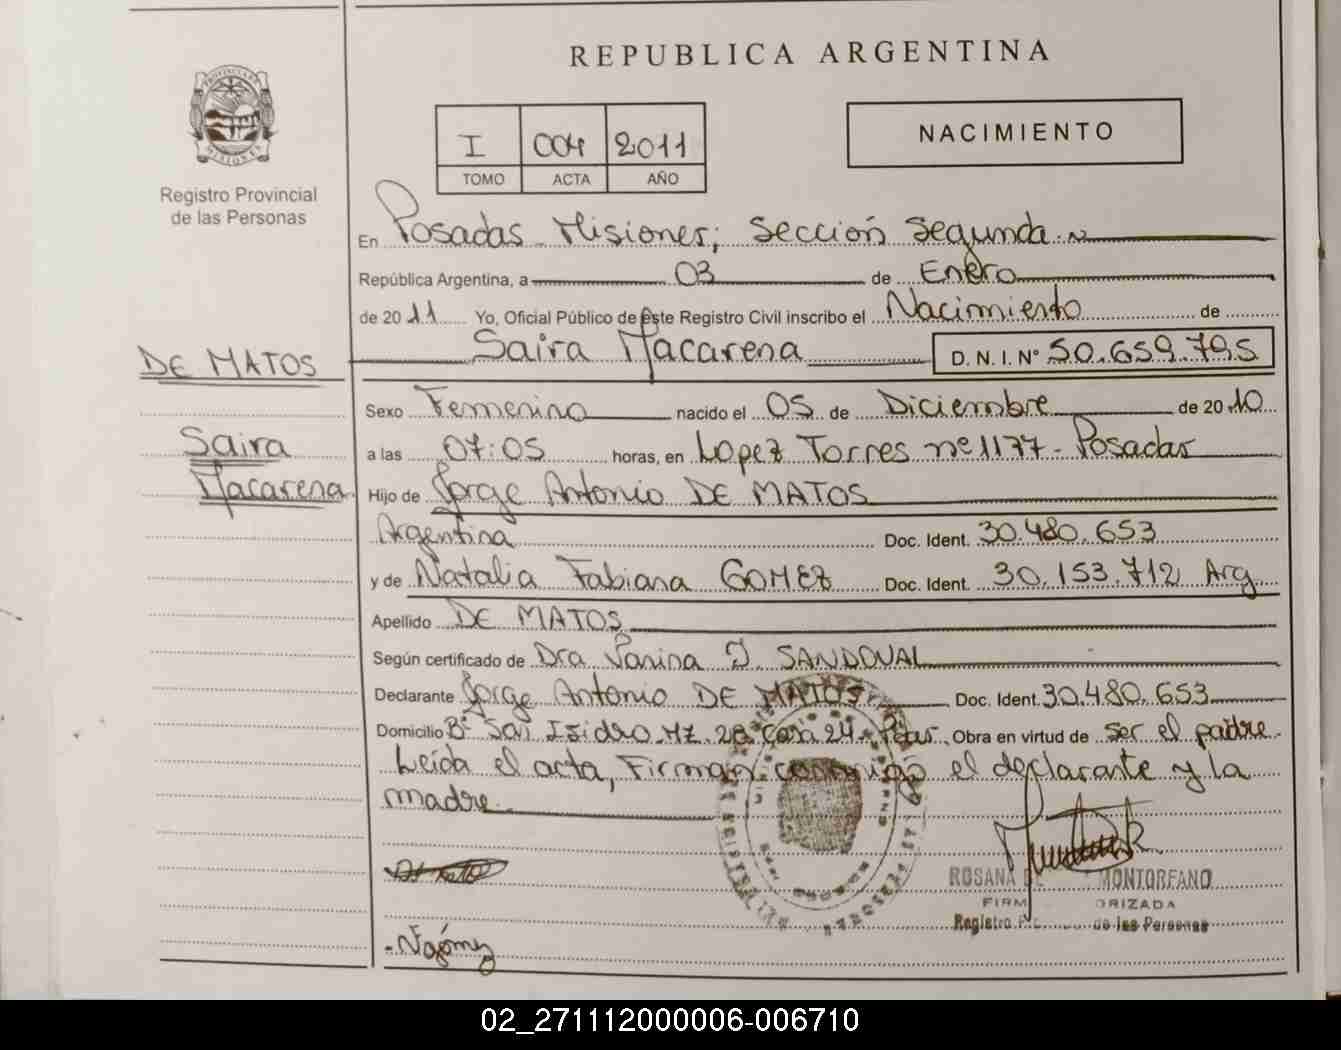 REPUBLICA ARGENTINA
I 004 2011
TOMO ACTA AÑO
NACIMIENTO
Registro Provincial
de las Personas
En Posadas Misiones, Sección Segunda
República Argentina, a 03 de Enero
de 2011 Yo, Oficial Público de este Registro Civil inscribo el Nacimiento de
Saira Macarena D.N.I. N° 50.659.795
DE MATOS
Saira
Macarena
Sexo Femenino nacido el 05 de Diciembre de 2010
a las 07:05 horas, en Lopez Torres nº 1177 - Posadas
Hijo de Jorge Antonio DE MATOS
Argentina Doc. Ident. 30.480.653
y de Natalia Fabiana GOMEZ Doc. Ident. 30.153.712 Arg.
Apellido DE MATOS
Según certificado de Dra Vanina J. SANDOVAL
Declarante Jorge Antonio DE MATOS Doc. Ident. 30.480.653
Domicilio Bº San Isidro Mz. 28 casa 24 - Pdas. Obra en virtud de ser el padre.
Leída el acta, Firman conmigo el declarante y la
madre
ROSANA MONTORFANO
Registro de las Personas
NGómez
02_271112000006-006710